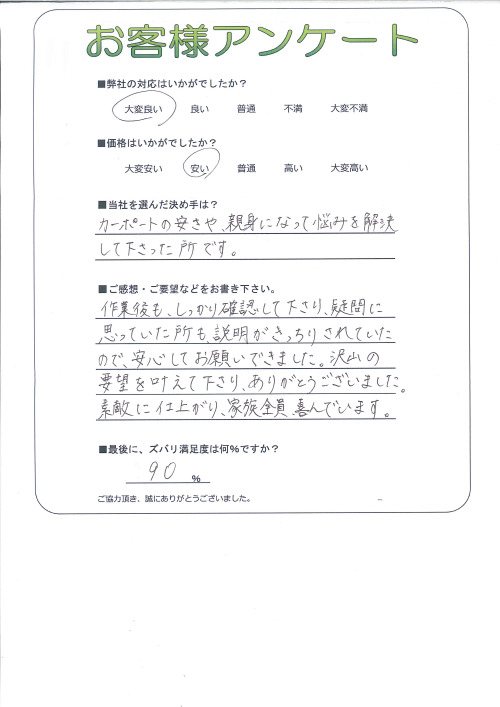 お客様アンケート
■弊社の対応はいかがでしたか？
大変良い 良い 普通 不満 大変不満
■価格はいかがでしたか？
大変安い 安い 普通 高い 大変高い
■当社を選んだ決め手は？
カーポートの安さや、親身になって悩みを解決
して下さった所です。
■ご感想・ご要望などをお書き下さい。
作業後も、しっかり確認して下さり、疑問に
思っていた所も、説明がきっちりされていた
ので、安心してお願いできました。沢山の
要望を叶えて下さり、ありがとうございました。
素敵に仕上がり、家族全員、喜んでいます。
■最後に、ズバリ満足度は何%ですか？
90 %
ご協力頂き、誠にありがとうございました。